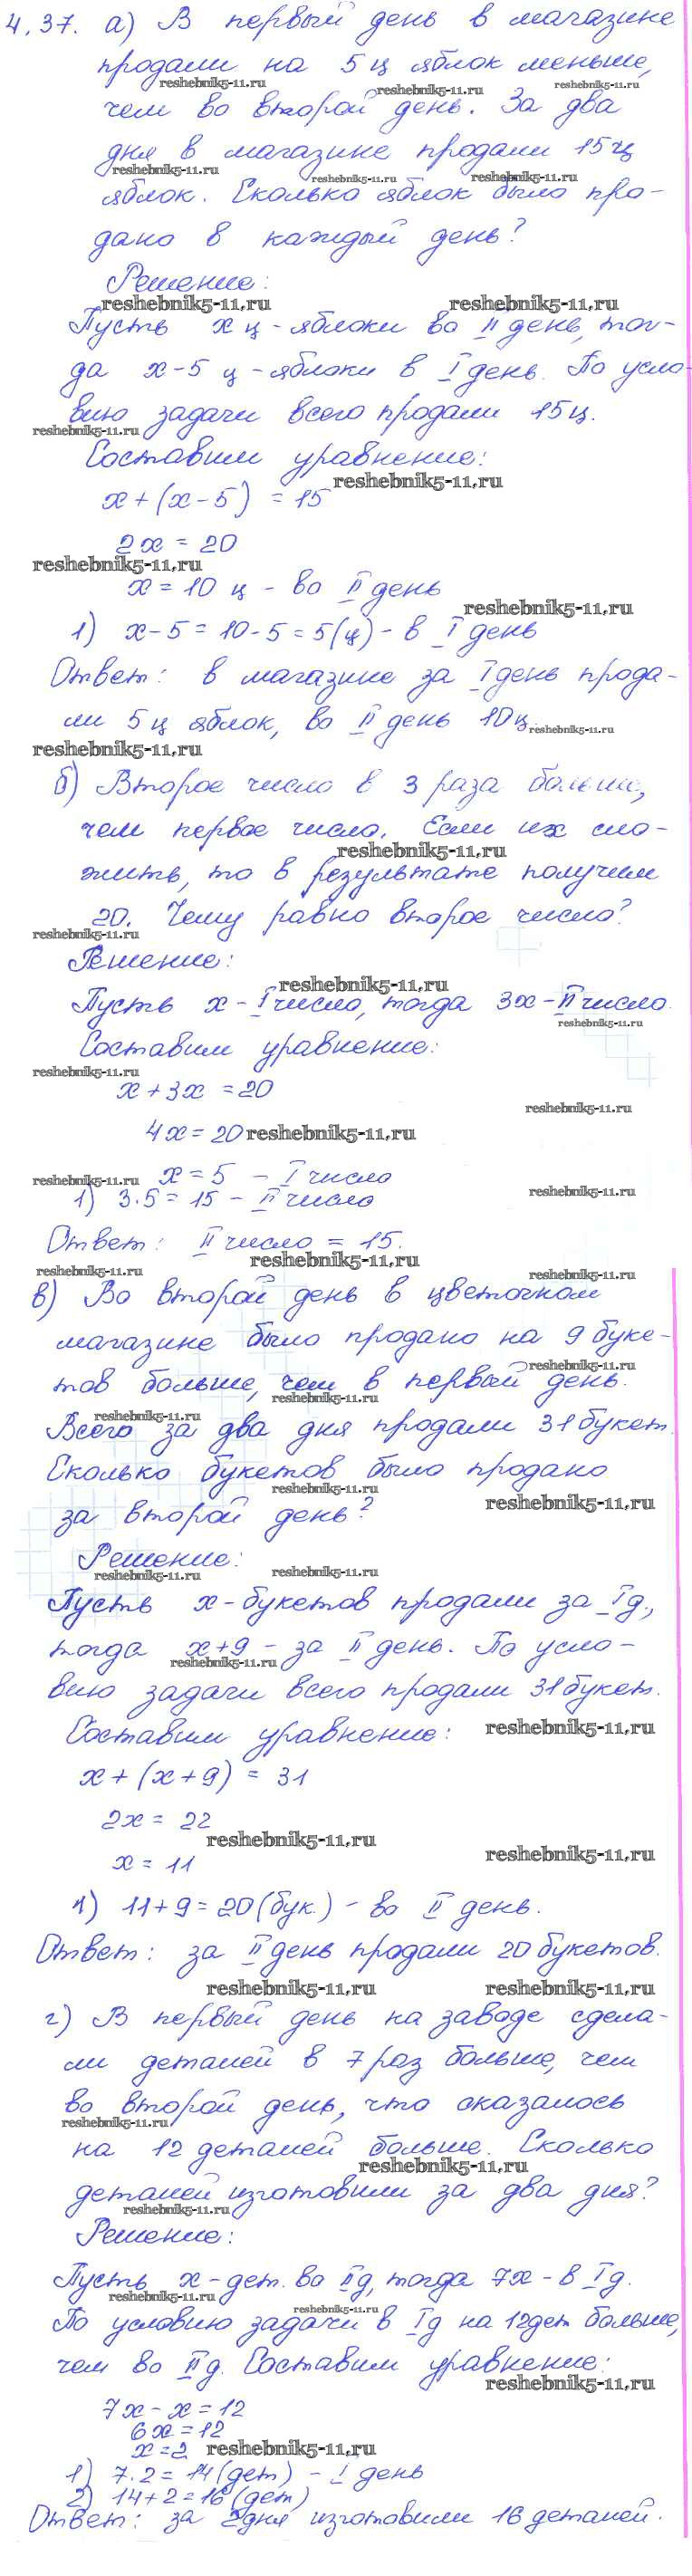 4.37. а) В первый день в магазине
продали на 5 ц яблок меньше,
reshebnik5-11.ru
reshebnik5-11.ru reshebnik5-11.ru
чем во второй день. За два
дня в магазине продали 15 ц
reshebnik5-11.ru reshebnik5-11.ru reshebnik5-11.ru
яблок. Сколько яблок было про-
дано в каждый день?
Решение:
reshebnik5-11.ru reshebnik5-11.ru
Пусть х ц - яблоки во II день, тог-
да х-5 ц - яблоки в I день. По усло-
вию задачи всего продали 15 ц.
reshebnik5-11.ru
Составим уравнение:
reshebnik5-11.ru
х+(х-5) = 15
2х = 20
reshebnik5-11.ru
х = 10 ц - во II день
reshebnik5-11.ru
1) х-5 = 10-5 = 5(ц) - в I день
Ответ: в магазине за I день прода-
ли 5 ц яблок, во II день 10 ц.
reshebnik5-11.ru
reshebnik5-11.ru
б) Второе число в 3 раза больше,
чем первое число. Если их сло-
reshebnik5-11.ru
жить, то в результате получим
20. Чему равно второе число?
reshebnik5-11.ru
Решение:
reshebnik5-11.ru
Пусть х - I число, тогда 3х - II число.
reshebnik5-11.ru
Составим уравнение:
reshebnik5-11.ru
х+3х = 20
reshebnik5-11.ru
4х = 20 reshebnik5-11.ru
reshebnik5-11.ru х = 5 - I число
reshebnik5-11.ru
1) 3·5 = 15 - II число
Ответ: II число = 15.
reshebnik5-11.ru
reshebnik5-11.ru reshebnik5-11.ru
в) Во второй день в цветочном
магазине было продано на 9 буке-
reshebnik5-11.ru
тов больше, чем в первый день.
reshebnik5-11.ru
reshebnik5-11.ru
Всего за два дня продали 31 букет.
Сколько букетов было продано
reshebnik5-11.ru
reshebnik5-11.ru
за второй день?
Решение:
reshebnik5-11.ru reshebnik5-11.ru
Пусть х - букетов продали за I д,
тогда х+9 - за II день. По усло-
reshebnik5-11.ru
вию задачи всего продали 31 букет.
Составим уравнение: reshebnik5-11.ru
х+(х+9) = 31
2х = 22
reshebnik5-11.ru
reshebnik5-11.ru
х = 11
1) 11+9 = 20(бук.) - во II день.
Ответ: за II день продали 20 букетов.
reshebnik5-11.ru reshebnik5-11.ru
г) В первый день на заводе сдела-
ли деталей в 7 раз больше, чем
во второй день, что оказалось
reshebnik5-11.ru
на 12 деталей больше. Сколько
reshebnik5-11.ru
деталей изготовили за два дня?
reshebnik5-11.ru
Решение:
Пусть х - дет. во II д, тогда 7х - в I д.
reshebnik5-11.ru
reshebnik5-11.ru
По условию задачи в I д на 12 дет больше,
чем во II д. Составим уравнение:
reshebnik5-11.ru
7х - х = 12
6х = 12
х = 2 reshebnik5-11.ru
1) 7·2 = 14(дет) - I день
2) 14+2 = 16(дет)
Ответ: за 2 дня изготовили 16 деталей.